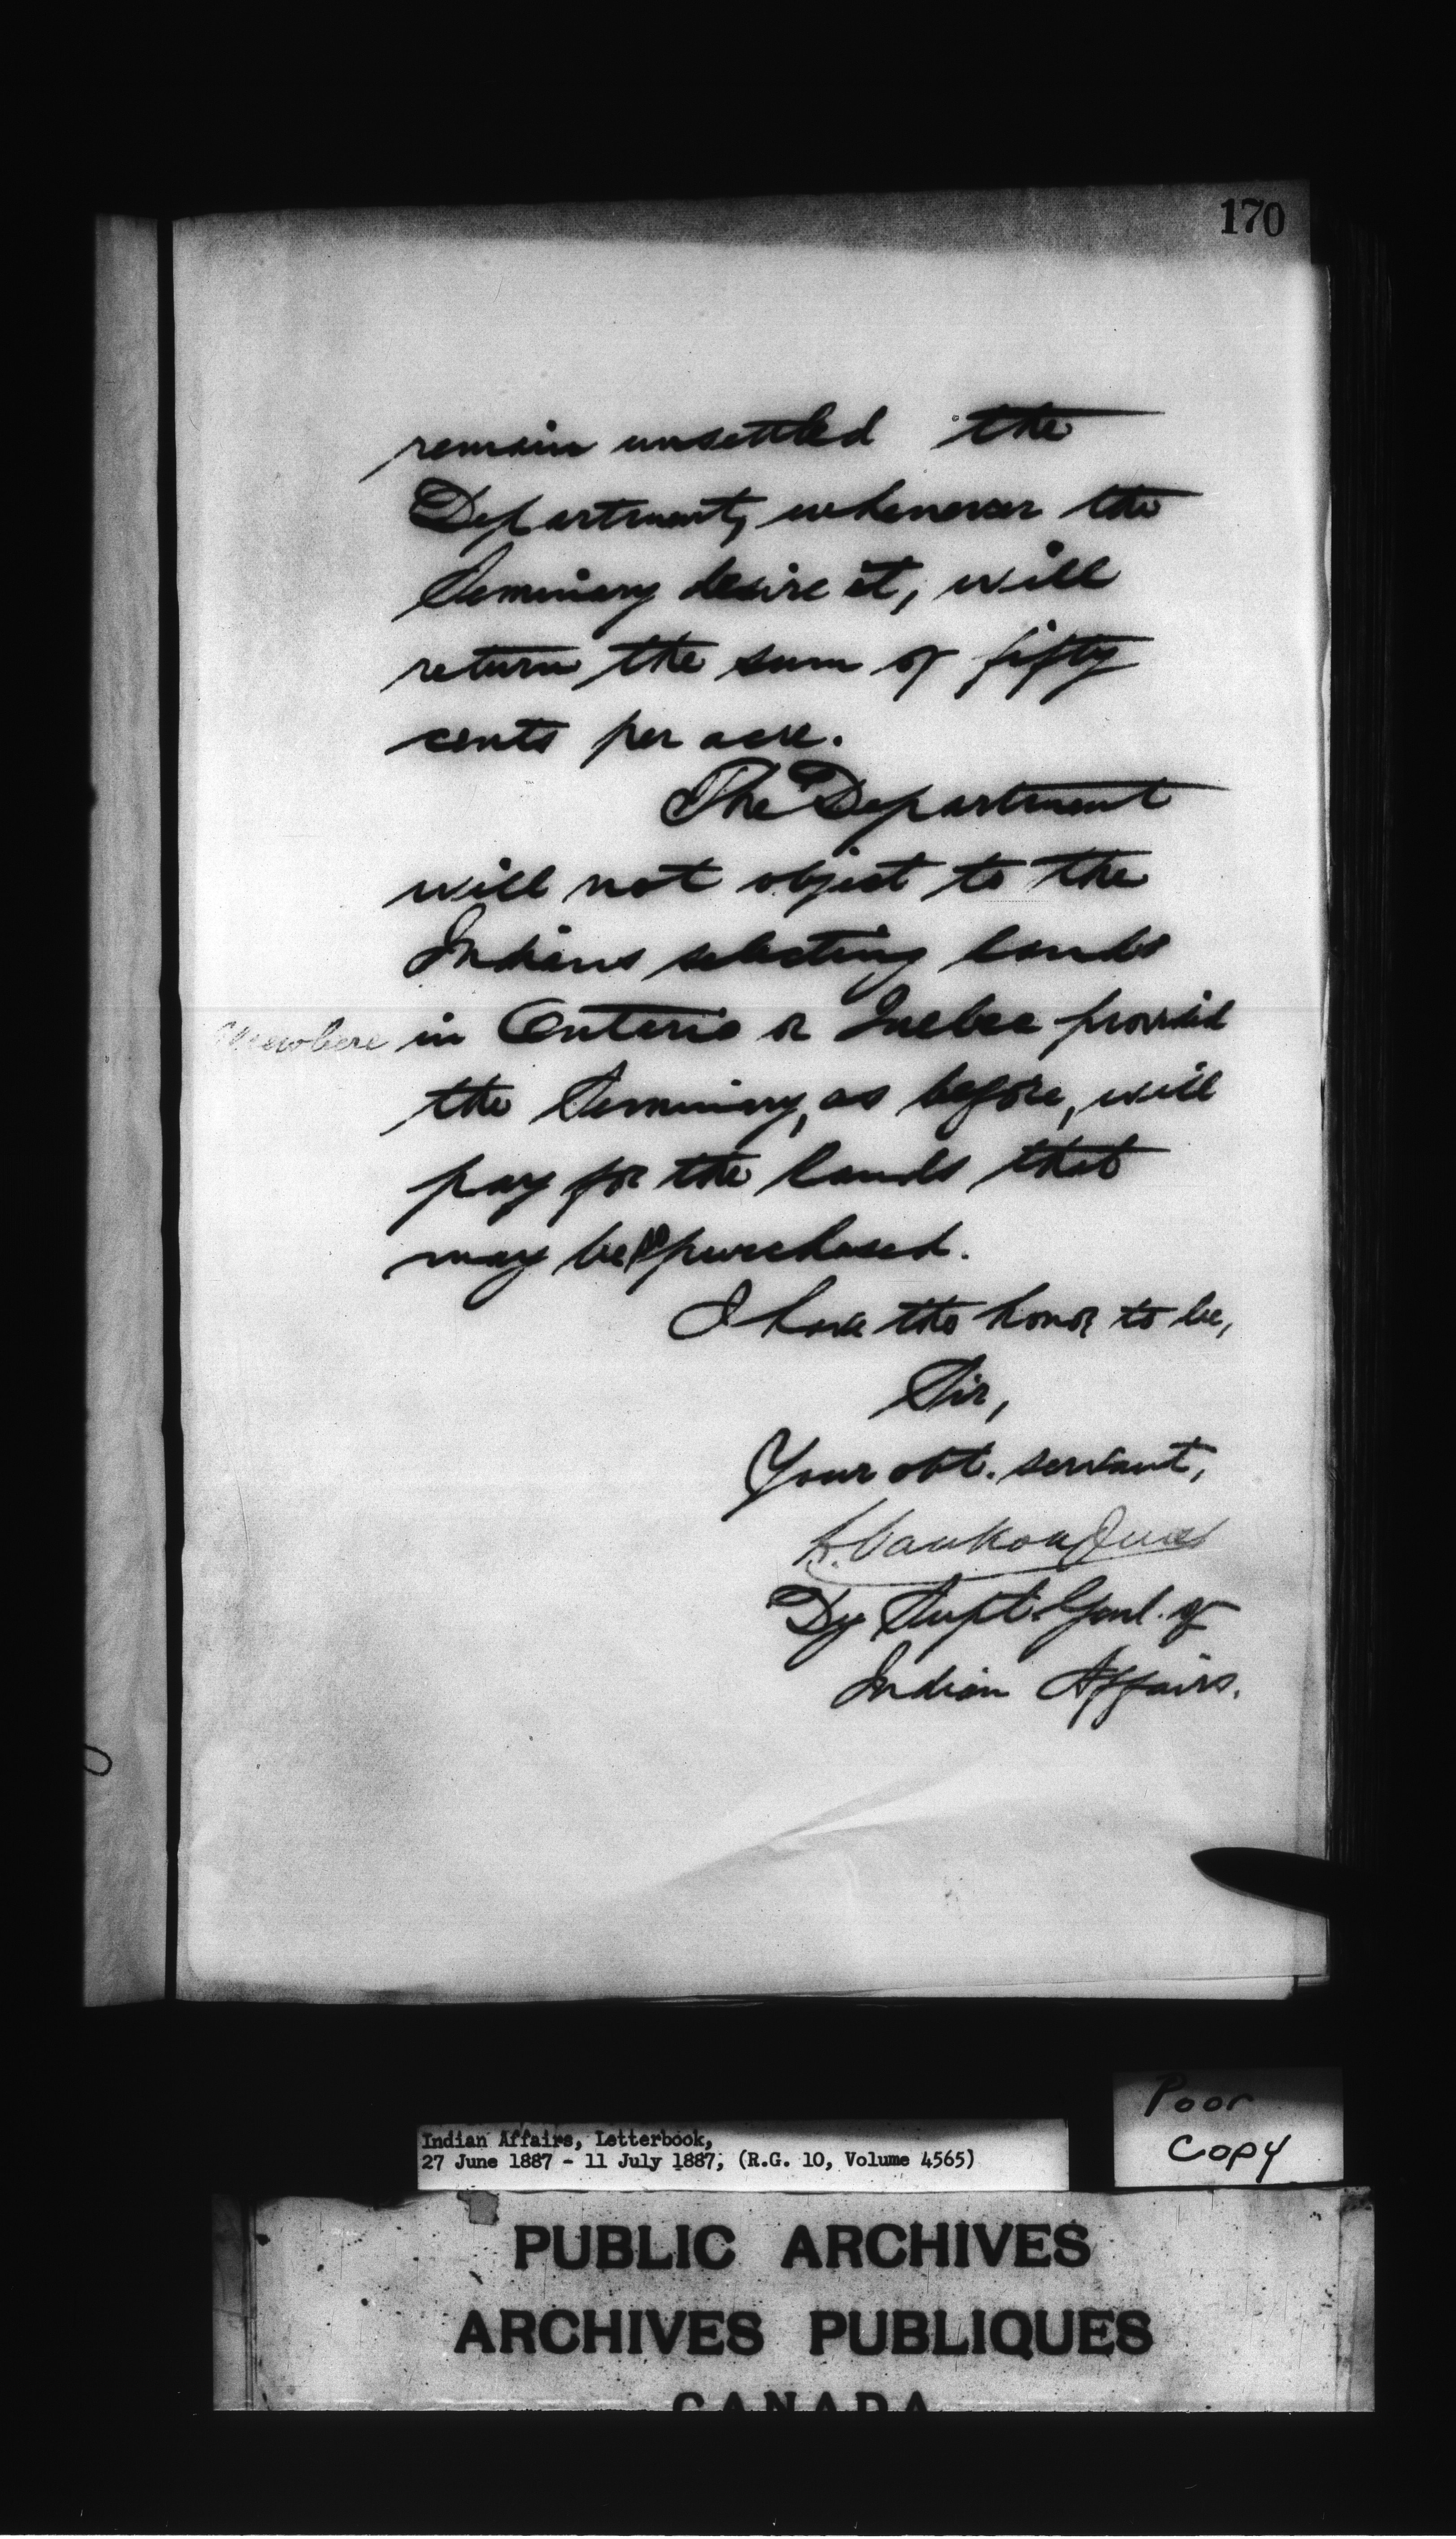 170
remain unsettled the
Department, whenever the
Seminary desire it, will
return the sum of fifty
cents per acre.
The Department
will not object to the
Indians selecting lands
elsewhere in Ontario or Quebec provided
the Seminary, as before, will
pay for the lands that
may be purchased.
I have the honor to be,
Sir,
Your obt. servant,
L. Vankoughnet
Dy Supt. Genl. of
Indian Affairs.
Poor
Copy
Indian Affairs, Letterbook,
27 June 1887 - 11 July 1887, (R.G. 10, Volume 4565)
PUBLIC ARCHIVES
ARCHIVES PUBLIQUES
CANADA